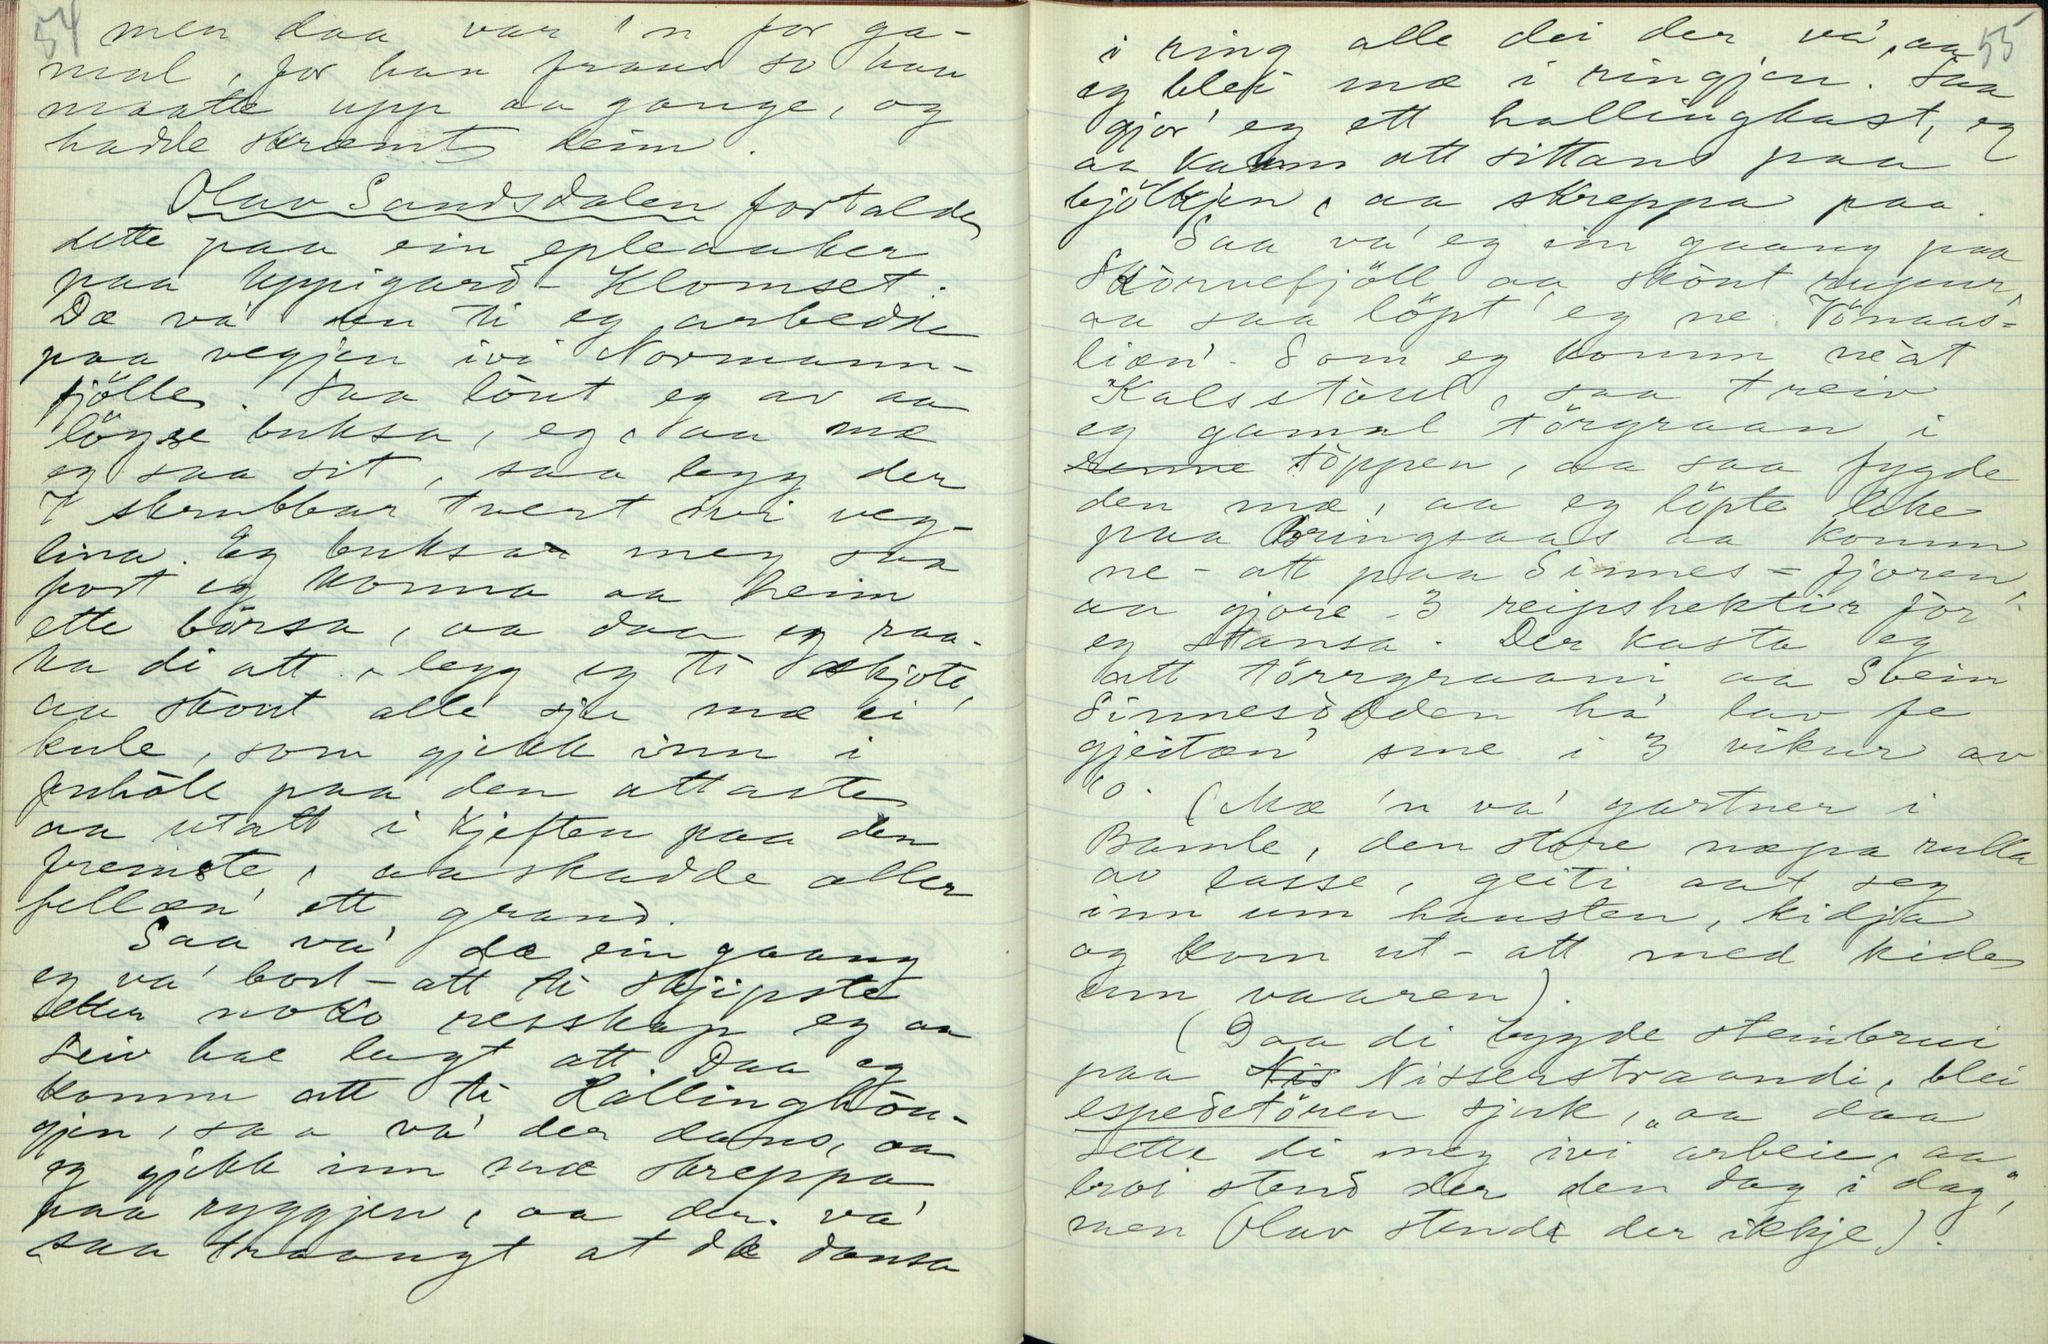 54
men daa var 'n for ga-
mal, for han fraus so han
maatte upp aa gange, og
hadde skræmt deim.
Olav Sandsdalen fortalde
dette paa ein epleaaker
paa Uppigard-Klomset.
Dæ va' en ti eg arbedde
paa vegjen ivi Normann-
fjölle. Saa lönt eg av aa
löyse buksa, eg, aa mæ
eg saa sit, saa legg der
7 skrubbar tvert ivi veg-
lina. Eg buksar meg saa
fort eg konna aa heim
ette börsa, aa daa eg raa-
ka di att, legg eg ti skjote,
aa skout alle sju mæ ei
kule, som gjekk inn i
fuhöle paa den attaste
aa utatt i kjeften paa den
fremste, aa skadde aller
fellæn' ett grand.
Saa va' dæ ein gaang
eg va' bort-att ti Skjipste
etter noko resskap eg aa
Leiv hae lagt att. Daa eg
komm att ti Hallinghöu-
gjen, saa va' der dans, aa
eg gjekk inn mæ skreppa
paa ryggjen, aa der va'
saa traangt at dæ dansa
55
i ring alle dei der va', aa
eg blei mæ i ringjen. Saa
gjor' eg ett hallingkast, eg
aa kaam att sittans paa
bjölkjen, aa skreppa paa.
Saa va' eg ein gaang paa
Skorvefjöll aa skout rugur,
aa saa löpt' eg ne Vönaas-
liæn'. Som eg komm ne at
Kalsstöul, saa treiv
eg gamal törgraan i
töppen, aa saa fygde
den mæ, aa eg löpte like
paa Bringsaas aa komm
ne-att paa Sinnes-fjoren,
aa gjore 3 reipshektir för
eg stansa. Der kasta eg
att törrgraani aa Svein
Sinnesodden ha' lav fe
gjeitæn' sine i 3 vikur av
'o. (Mæ 'n va' gartner i
Bamle, den store næpa rulla
av lasse, geiti aat seg
inn um hausten, kidja
og kom ut-att med kide
um vaaren).
(Daa di bygde steinbrui
paa Nis Nisserstraandi, blei
espedetören sjuk, "aa daa
sette di meg ivi arbeie, aa
broi stend der den dag i dag",
men Olav stend der ikkje).